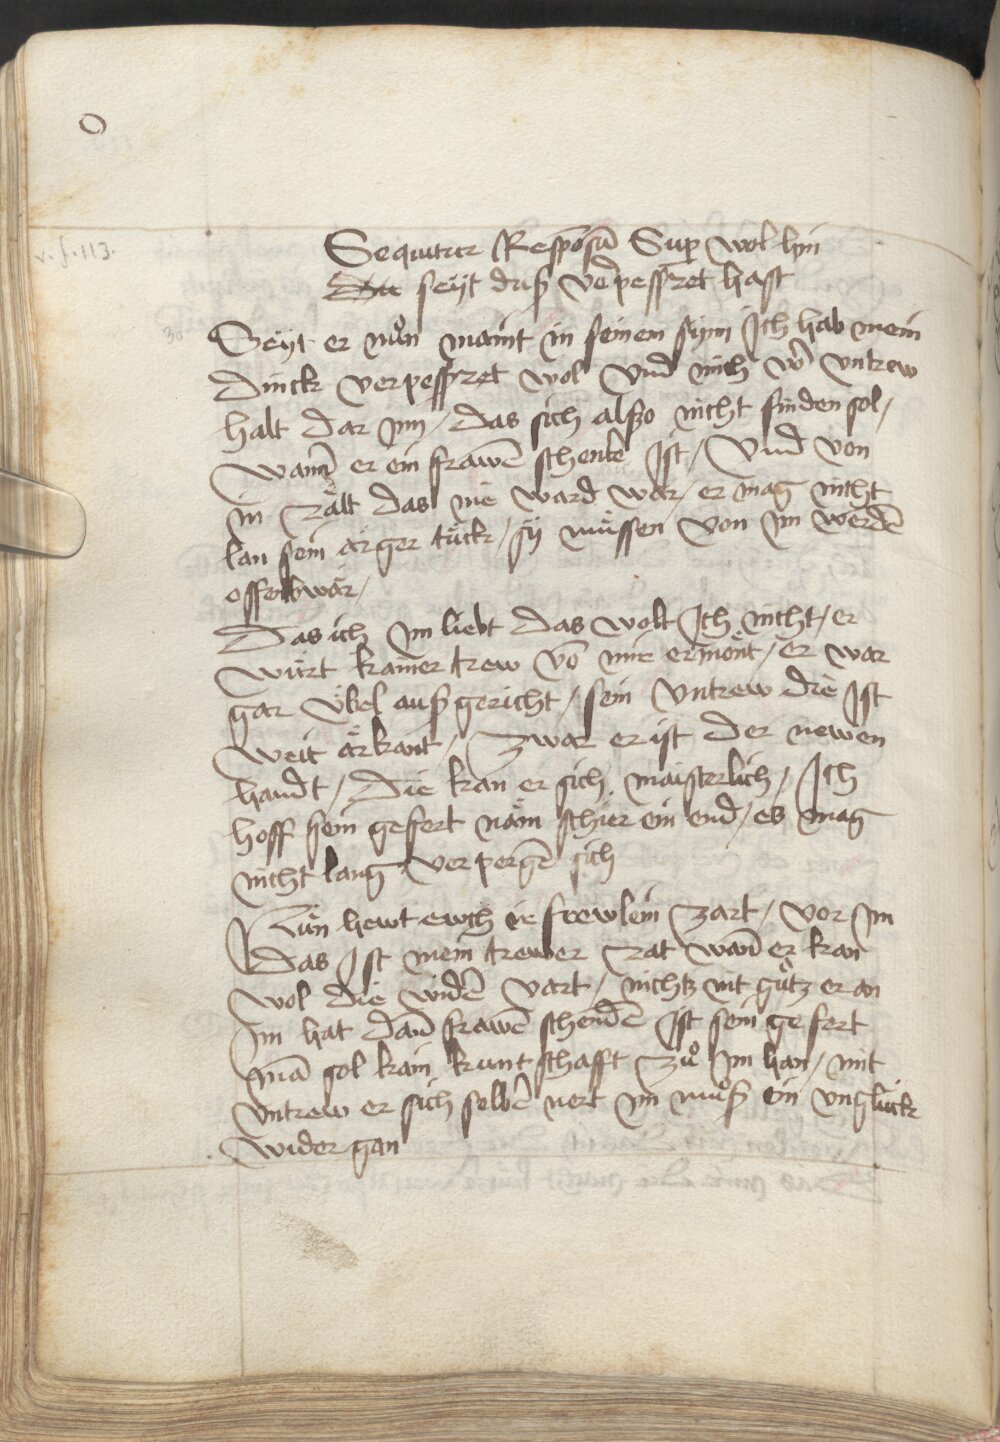 O
v. f. 113.
Sequitur Respōsū Sup wol hyn
Du seyt duß v̄pessret hast
Seyt er nuͦn maint in seinen synn Ich hab mein
dinck verpessret wol Vnd mich v̄ vntrew
halt dar Inn / das sich alßo nicht finden sol /
Wann er ein frawē schenter Ist / Vnd von
in zält das nie ward war / er mag nicht
lan sein ärger tück / sÿ müssen von Im werdē
offenbwär /
Das ich Im liebt das wolt Ich nicht / er
würt kainer trew vō mir ermönt / er war
gar übel auß gericht / sein vntrew die Ist
weit ärkant / Zwar er ist der newen
handt / Die kan er sich maisterlich / Ich
hoff sein gefert näm schier ein end / es mag
nicht lang verpergē sich
Nün hewt ewch ir frewlein zart / vor Im
das Ist mein trewer rat wan̄ er kan
wol die widē vart / nichtz nit guͤtz er an
Im hat dan̄ frawē schendē Ist sein gefert
Mā sol kain kuntschafft zuͦ Im han / mit
vntrew er sich selbē nert Im muͦß ein vnglück
wider gan